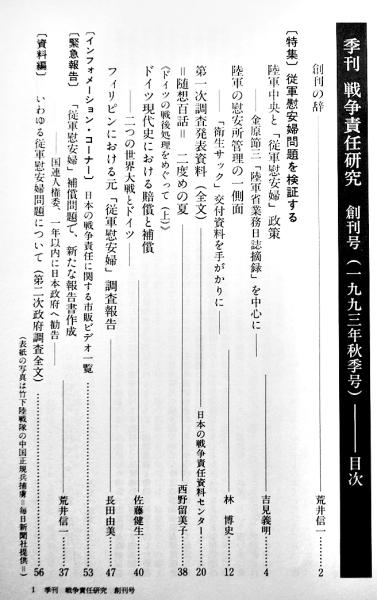 季刊 戦争責任研究 創刊号(一九九三年秋季号)――目次
創刊の辞 荒井信一 2
〔特集〕従軍慰安婦問題を検証する
陸軍中央と「従軍慰安婦」政策
――金原節三『陸軍省業務日誌摘録』を中心に―― 吉見義明 4
陸軍の慰安所管理の一側面
――「衛生サック」交付資料を手がかりに―― 林 博史 12
第一次調査発表資料(全文) 日本の戦争責任資料センター 20
=随想百話= 二度めの夏 西野留美子 38
〈ドイツの戦後処理をめぐって(上)〉
ドイツ現代史における賠償と補償
――二つの世界大戦とドイツ―― 佐藤健生 40
フィリピンにおける元「従軍慰安婦」調査報告 長田由美 47
〔インフォメーション・コーナー〕 日本の戦争責任に関する市販ビデオ一覧 53
〔緊急報告〕 「従軍慰安婦」補償問題で、新たな報告書作成
――国連人権委、一年以内に日本政府へ勧告―― 荒井信一 37
〔資料編〕 いわゆる従軍慰安婦問題について(第二次政府調査全文) 56
(表紙の写真は竹下陸戦隊の中国正規兵捕虜=毎日新聞社提供=)
1 季刊 戦争責任研究 創刊号